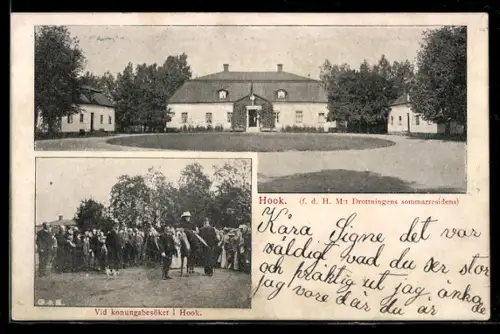 Hook. (f. d. H. M:t Drottningens sommarresidens)
Kära Signe det var
väldigt vad du ser stor
och präktig ut jag, önska
jag vore där du är
Vid konungabesöket i Hook.